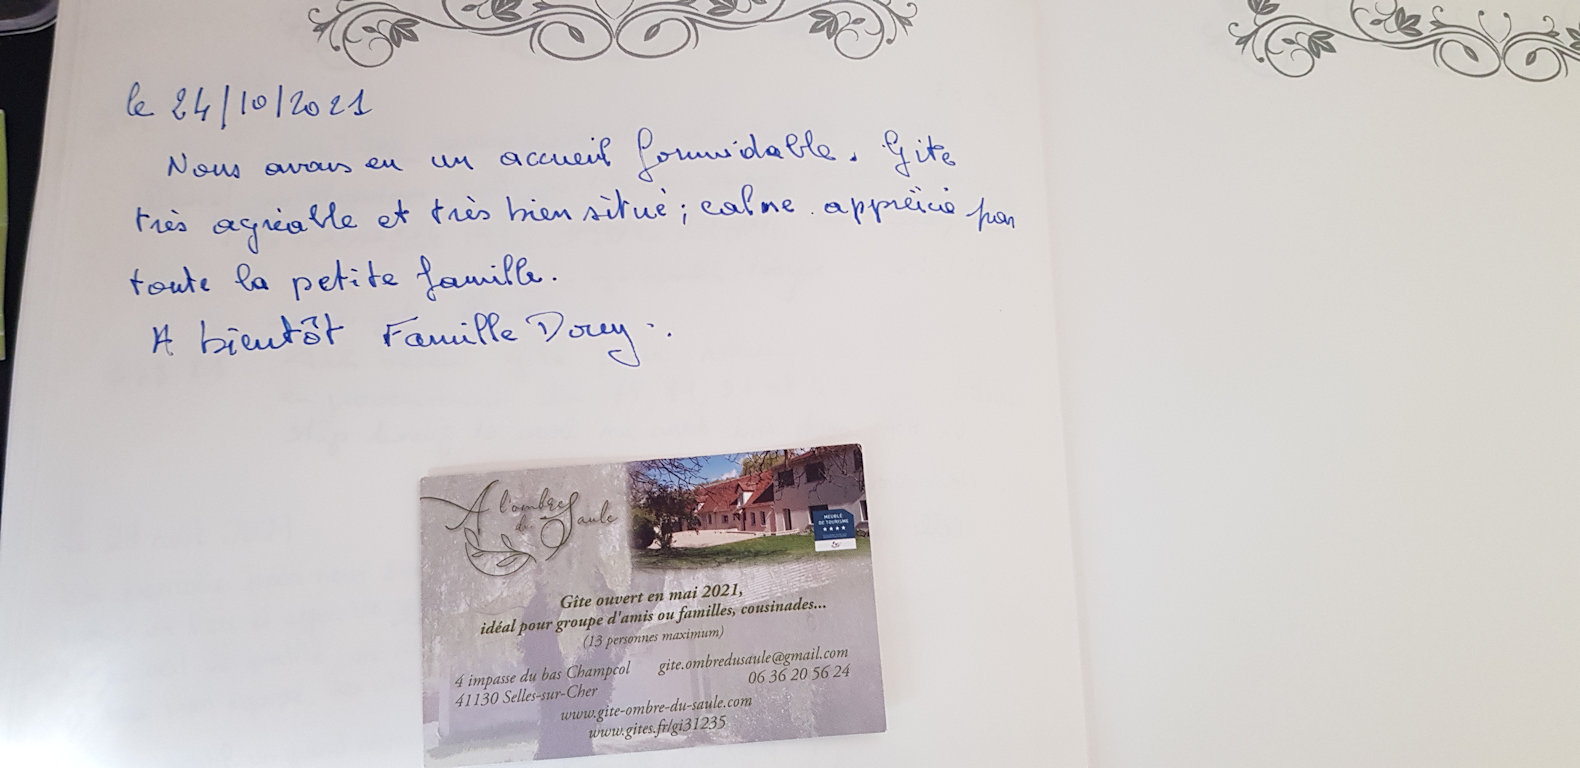 le 24/10/2021
Nous avons eu un accueil formidable. Gite
très agréable et très bien situé; calme apprécié par
toute la petite famille.
A bientôt Famille
A l'ombre
du Saule
MEUBLÉ
DE TOURISME
★★★★
Gîte ouvert en mai 2021,
idéal pour groupe d'amis ou familles, cousinades...
(13 personnes maximum)
4 impasse du bas Champcol
41130 Selles-sur-Cher
gite.ombredusaule@gmail.com
06 36 20 56 24
www.gite-ombre-du-saule.com
www.gites.fr/gi31235